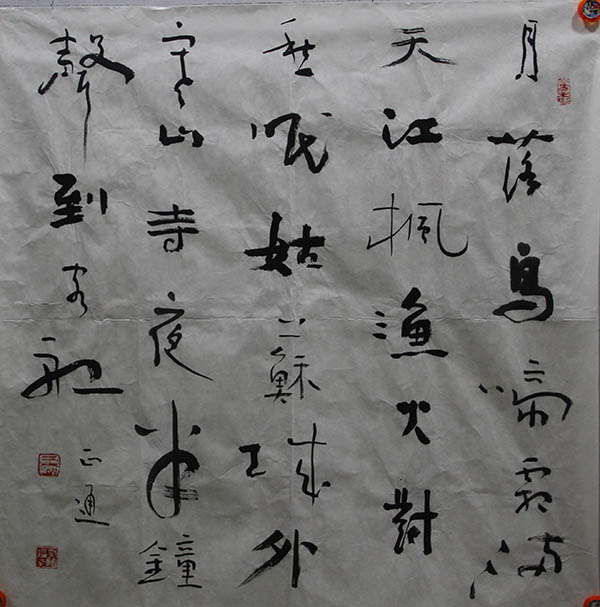 月落烏啼霜滿
天江楓漁火對
愁眠姑蘇城外
寒山寺夜半鐘
聲到客船
正通